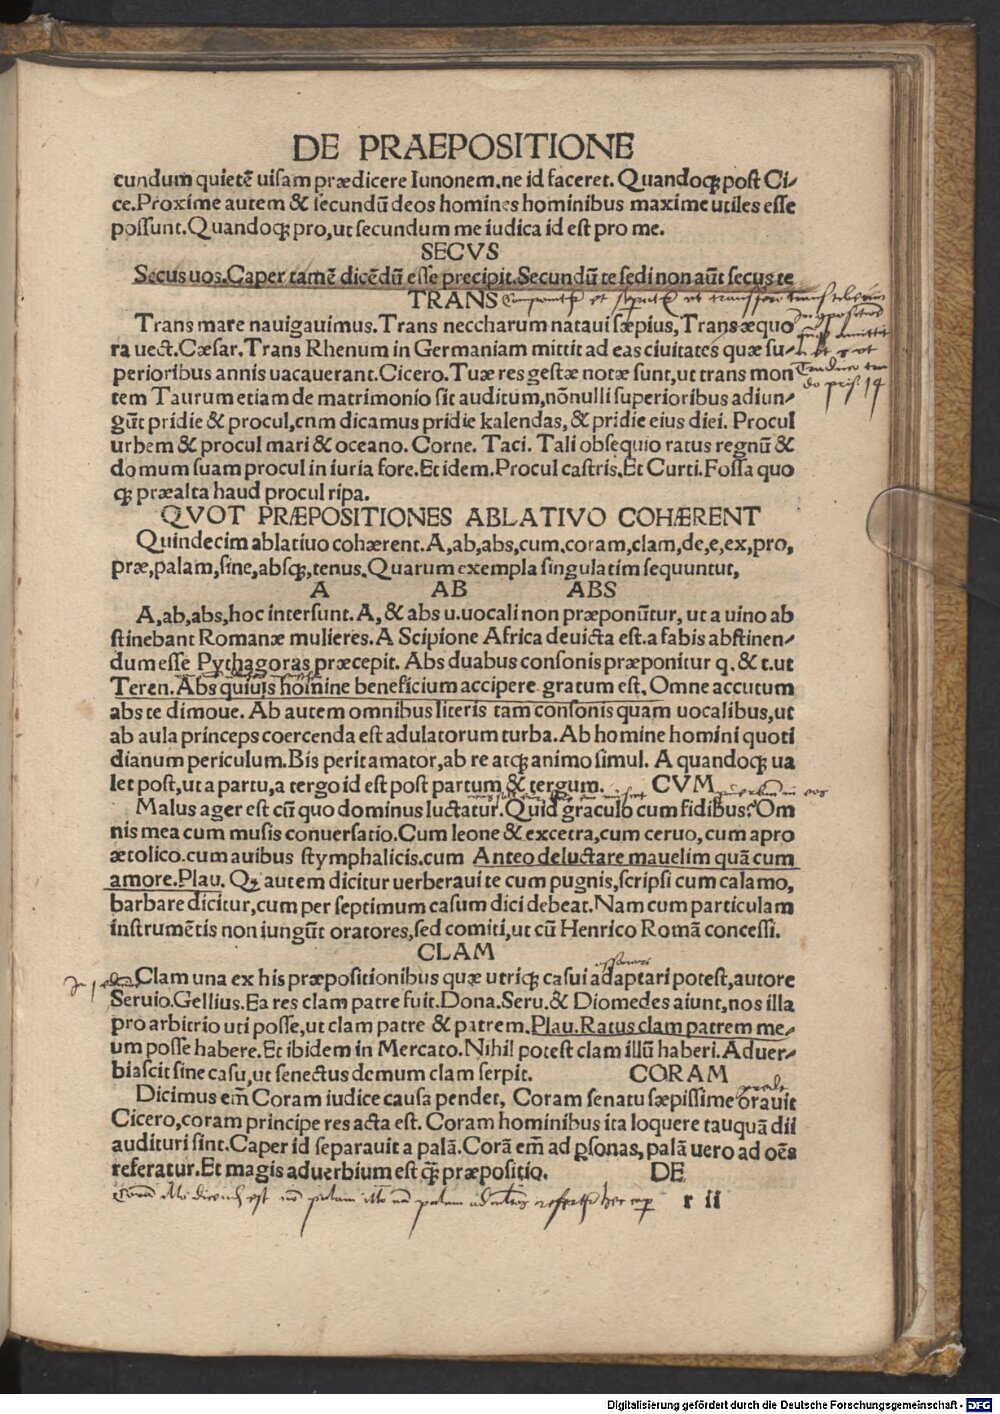 DE PRAEPOSITIONE
cundum quietē uisam prædicere Iunonem.ne id faceret. Quandoqꝫ post Ci-
ce.Proxime autem & secundū deos homines hominibus maxime utiles esse
possunt.Quandoqꝫ pro,ut secundum me iudica id est pro me.
SECVS
Secus uos.Caper tamē dicēdū esse precipit.Secundū te sedi non aūt secus te
TRANS
Trans mare nauigauimus.Trans neccharum nataui sæpius, Trans æquo
ra uect.Cæsar.Trans Rhenum in Germaniam mittit ad eas ciuitates quæ su-
perioribus annis uacauerant.Cicero.Tuæ res gestæ notæ sunt,ut trans mon
tem Taurum etiam de matrimonio sit auditum,nōnulli superioribus adiun-
gūt pridie & procul,cnm dicamus pridie kalendas, & pridie eius diei. Procul
urbem & procul mari & oceano. Corne. Taci. Tali obsequio ratus regnū &
domum suam procul in iuria fore.Et idem.Procul castris.Et Curti.Fossa quo
qꝫ præalta haud procul ripa.
QVOT PRÆPOSITIONES ABLATIVO COHÆRENT
Quindecim ablatiuo cohærent.A,ab,abs,cum.coram,clam,de,e,ex,pro,
præ,palam,sine,absqꝫ,tenus.Quarum exempla singulatim sequuntur,
A AB ABS
A,ab,abs,hoc intersunt.A, & abs u.uocali non præponūtur, ut a uino ab
stinebant Romanæ mulieres.A Scipione Africa deuicta est.a fabis abstinen-
dum esse Pythagoras præcepit. Abs duabus consonis præponitur q. & t.ut
Teren.Abs quiuis homine beneficium accipere gratum est. Omne accutum
abs te dimoue. Ab autem omnibus literis tam consonis quam uocalibus,ut
ab aula princeps coercenda est adulatorum turba.Ab homine homini quoti
dianum periculum.Bis perit amator,ab re atqꝫ animo simul. A quandoqꝫ ua
let post,ut a partu,a tergo id est post partum & tergum. CVM
Malus ager est cū quo dominus luctatur.Quid graculo cum fidibus?Om
nis mea cum musis conuersatio.Cum leone & excetra,cum ceruo,cum apro
ætolico.cum auibus stymphalicis.cum Anteo deluctare mauelim quā cum
amore.Plau. Qꝫ autem dicitur uerberaui te cum pugnis,scripsi cum calamo,
barbare dicitur,cum per septimum casum dici debeat.Nam cum particulam
instrumētis non iungūt oratores,sed comiti,ut cū Henrico Romā concessi.
CLAM
Clam una ex his præpositionibus quæ utriqꝫ casui adaptari potest,autore
Seruio.Gellius.Ea res clam patre fuit.Dona.Seru.& Diomedes aiunt,nos illa
pro arbitrio uti posse,ut clam patre & patrem.Plau.Ratus clam patrem me-
um posse habere.Et ibidem in Mercato.Nihil potest clam illū haberi.Aduer-
biascit sine casu,ut senectus demum clam serpit. CORAM
Dicimus em̄ Coram iudice causa pendet, Coram senatu sæpissime orauit
Cicero,coram principe res acta est. Coram hominibus ita loquere tauquā dii
audituri sint.Caper id separauit a palā.Corā em̄ ad ꝑsonas, palā uero ad oēs
referatur.Et magis aduerbium est qꝫ̄ præpositio. DE
r ii
Digitalisierung gefördert durch die Deutsche Forschungsgemeinschaft - DFG